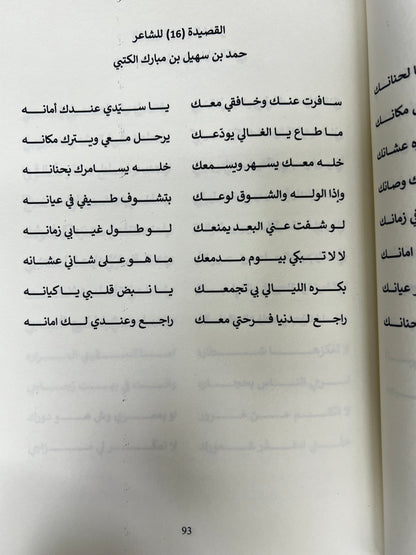 القصيدة (16) للشاعر
حمد بن سهيل بن مبارك الكتبي
سافرت عنك وخافقي معك يا سيّدي عندك أمانه
ما طاع يا الغالي يودّعك يرحل معي ويترك مكانه
خله معك يسهر ويسمعك خله يسامرك بحنانه
وإذا الوله والشوق لوعك بتشوف طيفي في عيانه
لو شفت عني البعد يمنعك لو طول غيابي زمانه
لا لا تبكي بيوم مدمعك ما هو على شاني عشانه
بكره الليالي بي تجمعك يا نبض قلبي يا كيانه
راجع لدنيا فرحتي معك راجع وعندي لك امانه
93